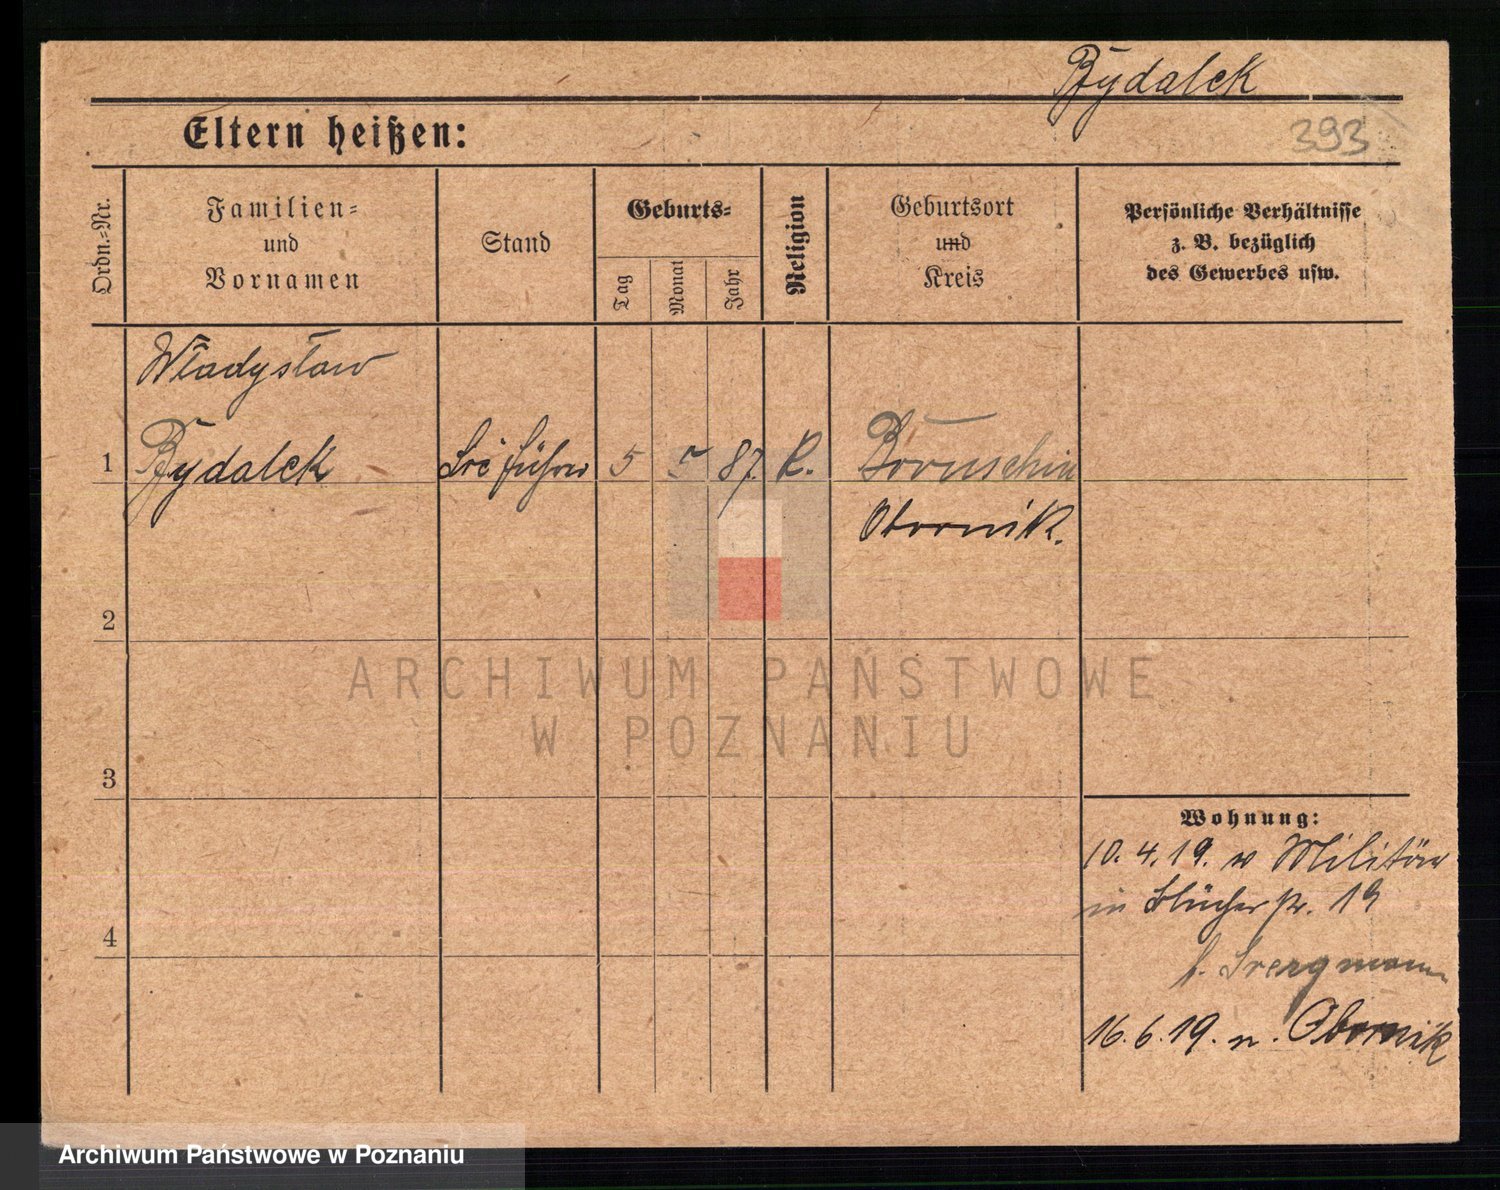 Bydalek
Eltern heißen:
393
Ordn.=Nr.
Familien=
und
Vornamen
Stand
Geburts=
Tag
Monat
Jahr
Religion
Geburtsort
und
Kreis
Persönliche Verhältnisse
z. B. bezüglich
des Gewerbes usw.
Władysław
1 Bydalek 5 5 87. R. Boruschin
Obornik.
2
3
4
Wohnung:
10.4.19. v Militär
in Blücherstr. 19
16.6.19. n. Obornik
ARCHIWUM PAŃSTWOWE
W POZNANIU
Archiwum Państwowe w Poznaniu